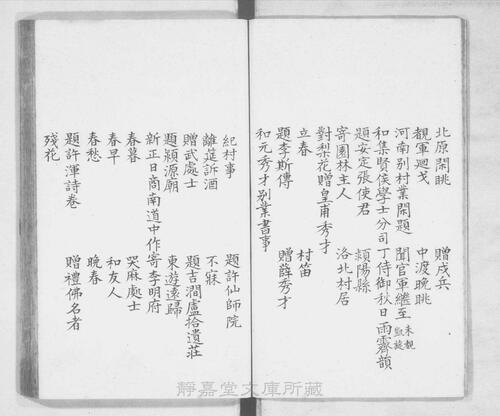 北原閑眺　贈戍兵
覩軍廻戈　中渡晚眺
河南别村業閑題　聞官軍繼至未覩凱旋
和集賢侯學士分司丁侍御秋日雨霽韻
題安定張使君　潁陽縣
寄園林主人　洛北村居
對梨花贈皇甫秀才
立春　村笛
題李斯傳　贈薛秀才
和元秀才别業書事
紀村事　題許仙師院
離筵訴酒　不寐
贈武處士　題吉澗盧拾遺莊
題潁源廟　東遊遠歸
新正日商南道中作寄李明府
春暮　哭麻處士
春早　和友人
春愁　晚春
題許渾詩卷　贈禮佛名者
殘花
靜嘉堂文庫所藏